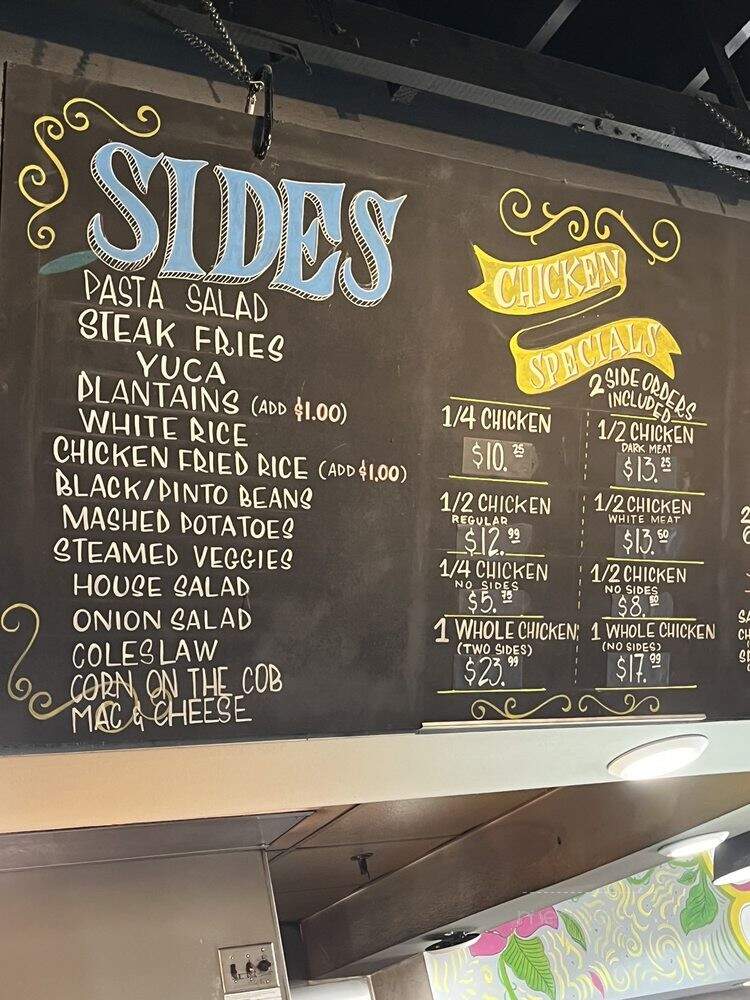 SIDES
PASTA SALAD
STEAK FRIES
YUCA
PLANTAINS (ADD $1.00)
WHITE RICE
CHICKEN FRIED RICE (ADD $1.00)
BLACK/PINTO BEANS
MASHED POTATOES
STEAMED VEGGIES
HOUSE SALAD
ONION SALAD
COLESLAW
CORN ON THE COB
MAC & CHEESE
CHICKEN
SPECIALS
2 SIDE ORDERS
INCLUDED
1/4 CHICKEN
$10.25
1/2 CHICKEN
DARK MEAT
$13.25
1/2 CHICKEN
REGULAR
$12.99
1/2 CHICKEN
WHITE MEAT
$13.50
1/4 CHICKEN
NO SIDES
$5.75
1/2 CHICKEN
NO SIDES
$8.50
1 WHOLE CHICKEN
(TWO SIDES)
$23.99
1 WHOLE CHICKEN
(NO SIDES)
$17.99